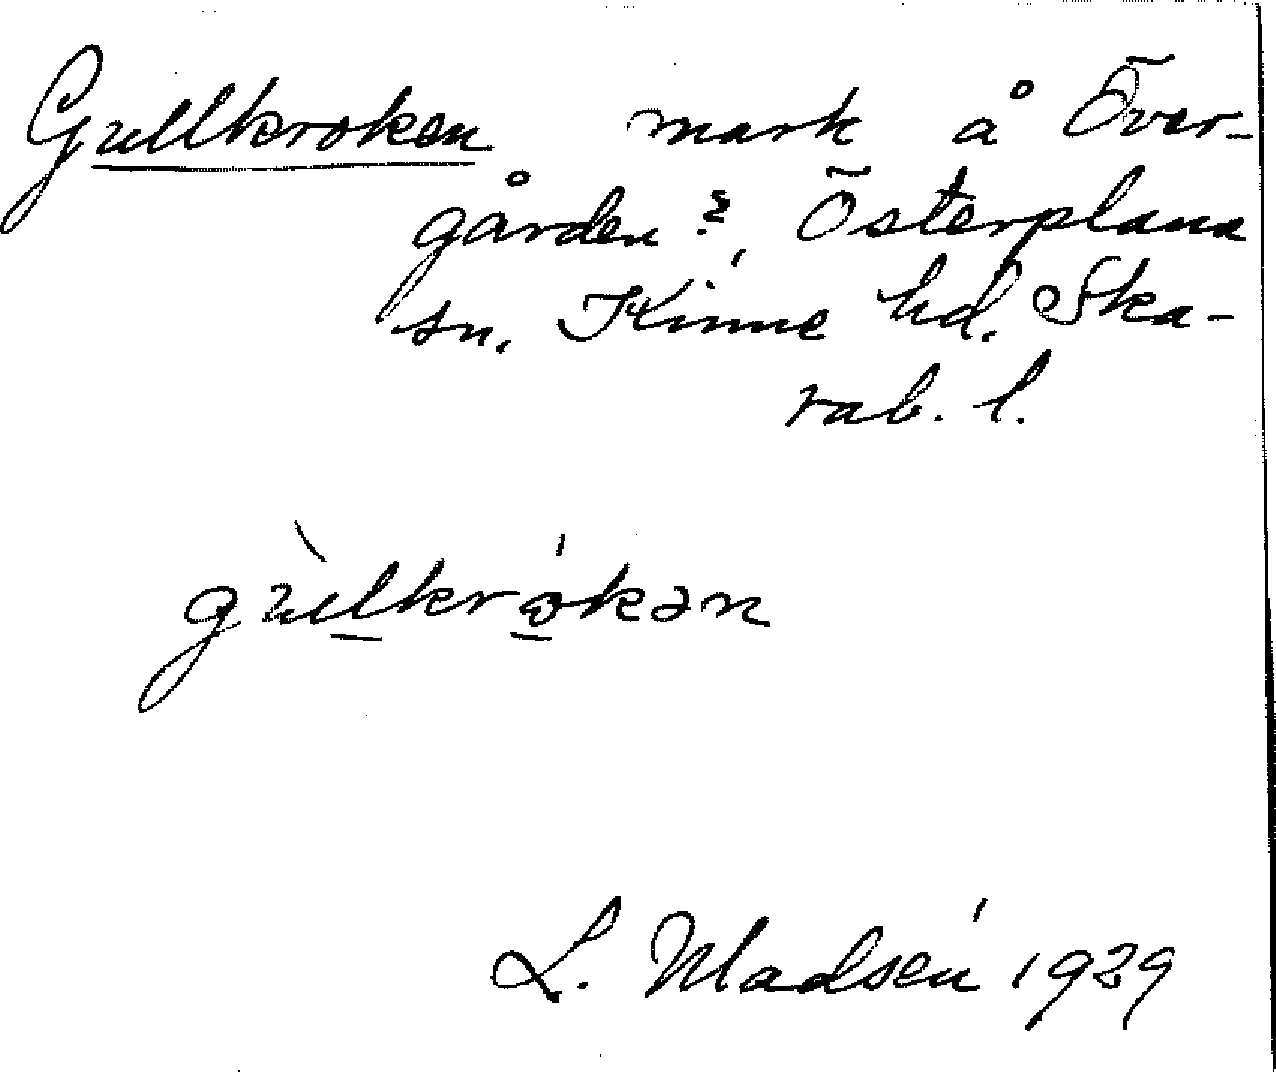 Gullkroken mark å Över-
gården 2, Österplana
sn. Kinne hd. Ska-
rab. l.
gu̇̀lkrɷ́kən
L. Madsén 1929